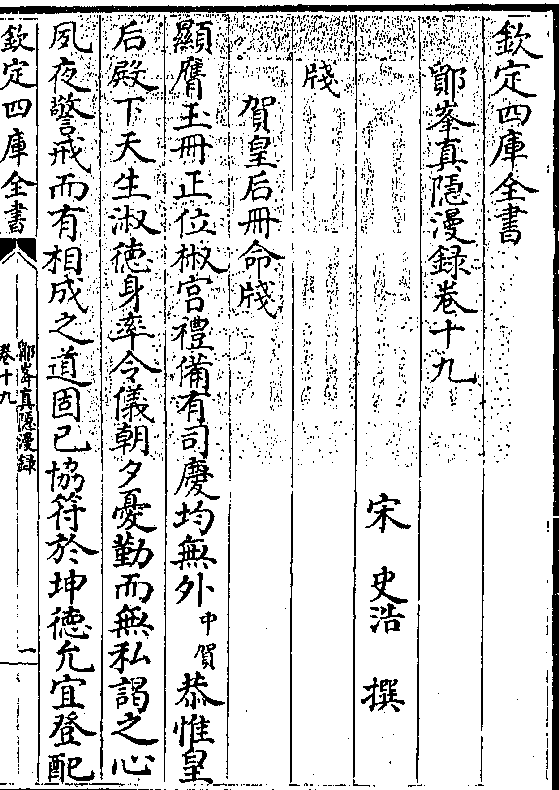 欽定四庫全書
鄮峯真隱漫錄卷十九
宋 史浩 撰
牋
賀皇后冊命牋
顯膺玉冊正位椒宮禮備有司慶均無外中賀恭惟皇
后殿下天生淑德身率令儀朝夕憂勤而無私謁之心
夙夜警戒而有相成之道固已協符於坤德允宜登配
欽定四庫全書
鄮峯真隱漫錄
卷十九
一